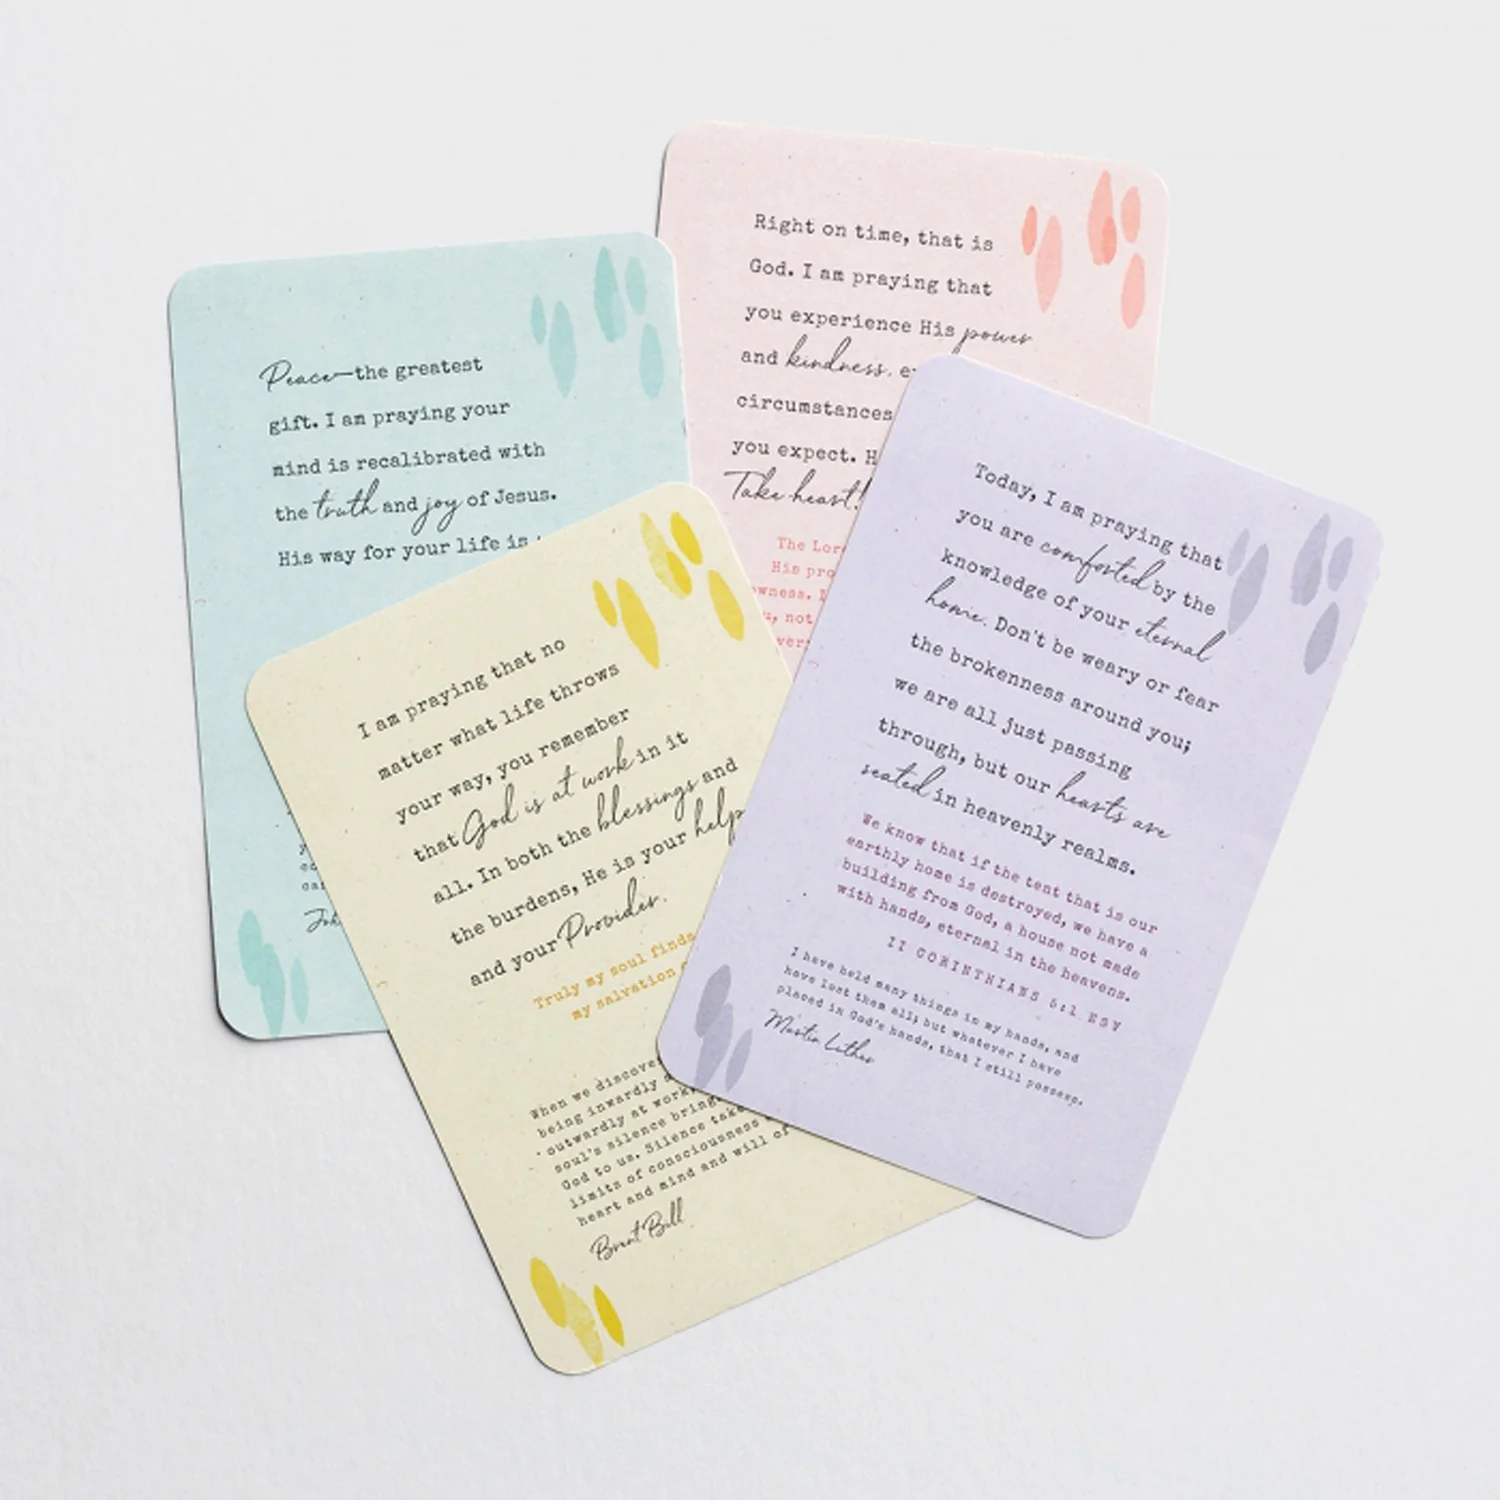 Peace—the greatest
gift. I am praying your
mind is recalibrated with
the truth and joy of Jesus.
His way for your life is
Right on time, that is
God. I am praying that
you experience His power
and kindness,
circumstances
you expect.
Take heart!
The
His
not
I am praying that no
matter what life throws
your way, you remember
that God is at work in it
all. In both the blessings and
the burdens, He is your help
and your Provider.
Truly my soul finds
my salvation
When we discover
being inwardly
outwardly at work
soul's silence brings
God to us. Silence takes
limits of consciousness
heart and mind and will of
Brent Bill
Today, I am praying that
you are comforted by the
knowledge of your eternal
home. Don't be weary or fear
the brokenness around you;
we are all just passing
through, but our hearts are
seated in heavenly realms.
We know that if the tent that is our
earthly home is destroyed, we have a
building from God, a house not made
with hands, eternal in the heavens.
II CORINTHIANS 5:1 ESV
I have held many things in my hands, and
have lost them all; but whatever I have
placed in God's hands, that I still possess.
Martin Luther